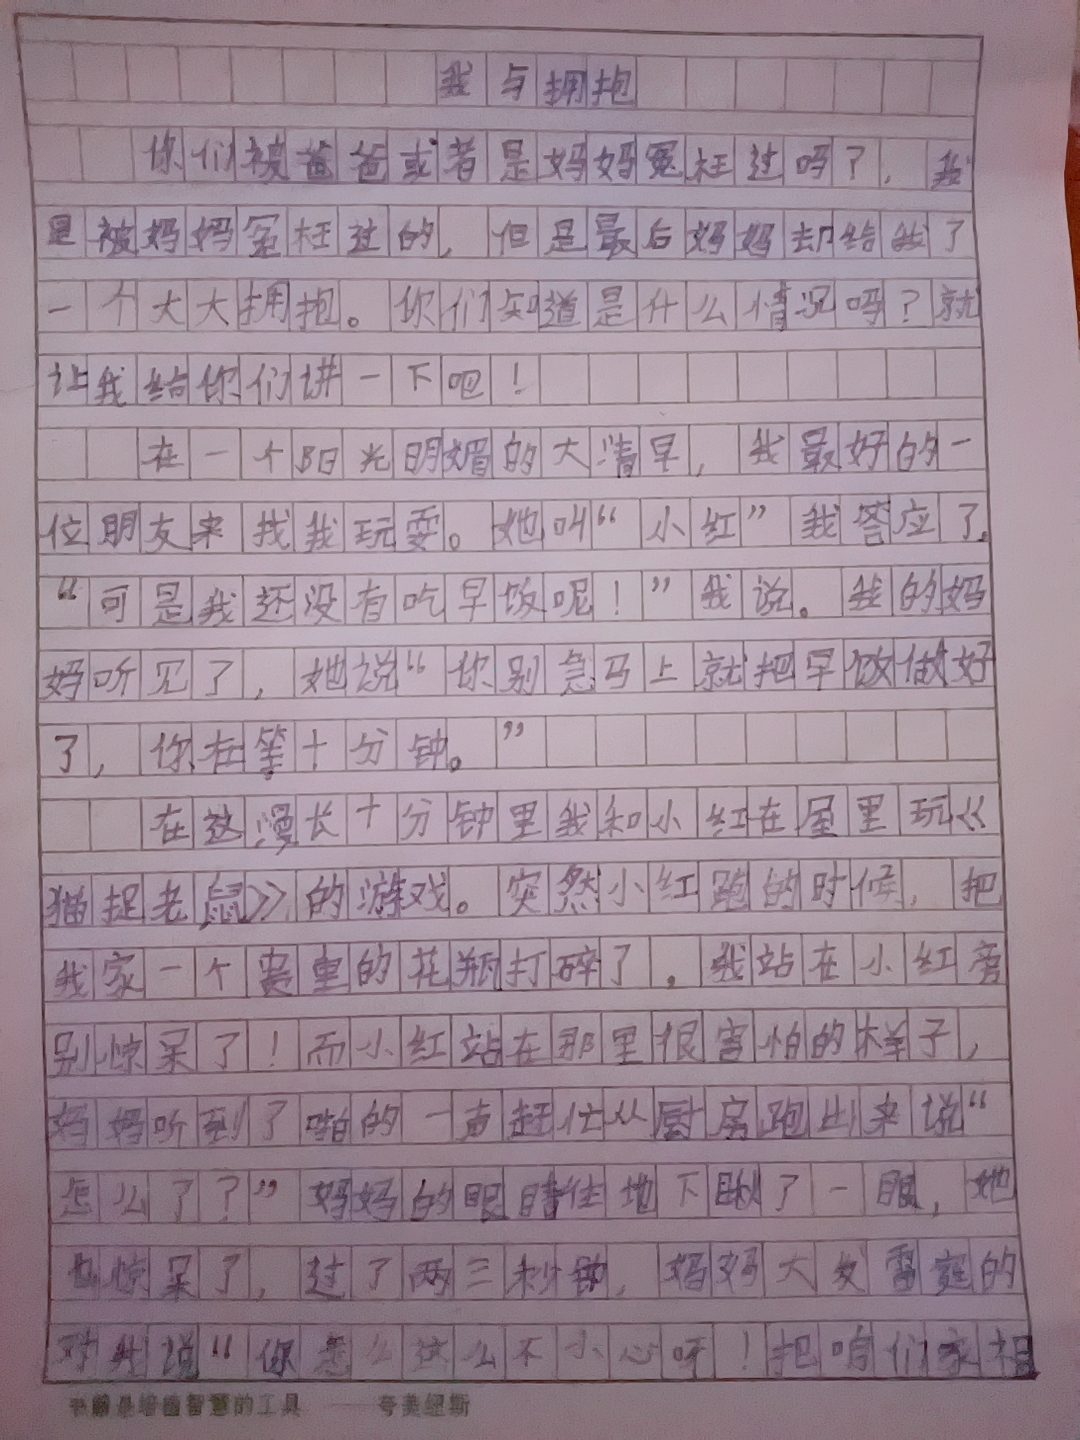 我与拥抱
你们被爸爸或者是妈妈冤枉过吗？，我
是被妈妈冤枉过的，但是最后妈妈却给我了
一个大大拥抱。你们知道是什么情况吗？就
让我给你们讲一下吧！
在一个阳光明媚的大清早，我最好的一
位朋友来找我玩耍。她叫“小红”我答应了。
“可是我还没有吃早饭呢！”我说。我的妈
妈听见了，她说“你别急马上就把早饭做好
了，你在等十分钟。”
在这漫长十分钟里我和小红在屋里玩《
猫捉老鼠》的游戏。突然小红跑的时候，把
我家一个贵重的花瓶打碎了。我站在小红旁
别惊呆了！而小红站在那里很害怕的样子，
妈妈听到了啪的一声赶忙从厨房跑出来说“
怎么了？”妈妈的眼睛往地下瞅了一眼，她
也惊呆了，过了两三秒钟，妈妈大发雷霆的
对我说“你怎么这么不小心呀！把咱们家相
书籍是培植智慧的工具 —— 夸美纽斯